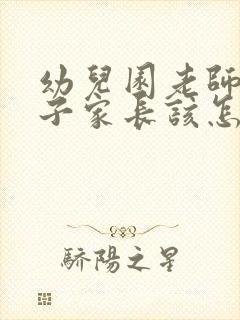 幼兒園老師
子家長該怎
驕陽之星